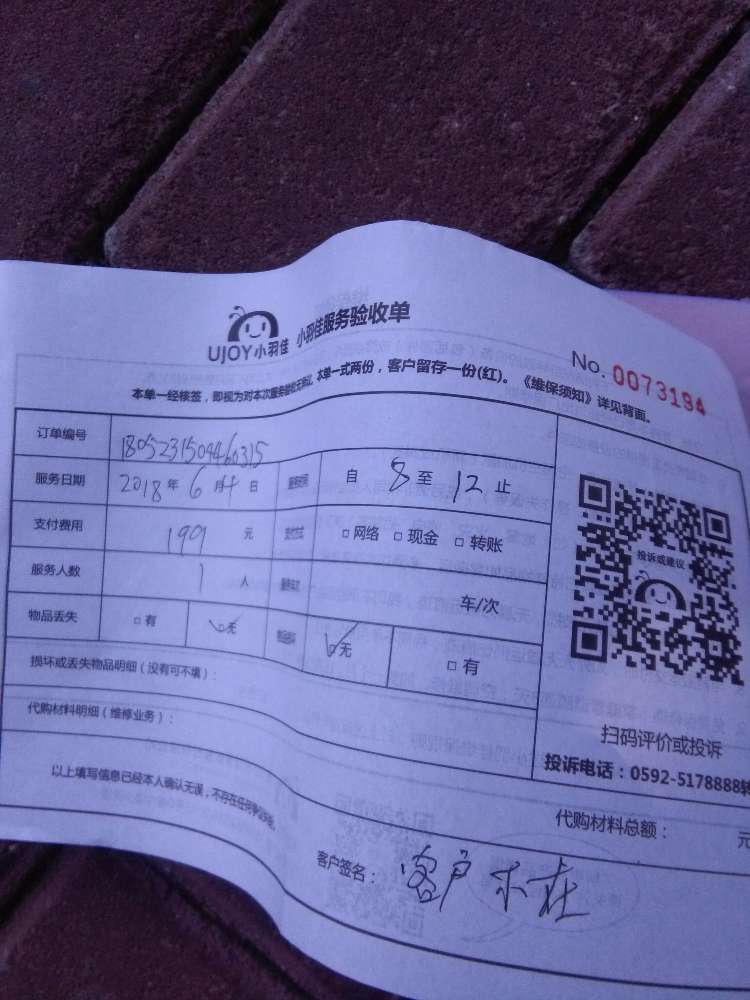 UJOY小羽佳 小羽佳服务验收单
No. 0073194
本单一经核签，即视为对本次服务验收无异议。本单一式两份，客户留存一份(红)。《维保须知》详见背面。
订单编号 1805231509460315
服务日期 2018年6月4日 服务时间 自 8 至 12 止
支付费用 199 元 支付方式 □网络 □现金 □转账
服务人数 1 人 车/次
物品丢失 □有 ☑无 ☑无 □有
损坏或丢失物品明细（没有可不填）：
代购材料明细（维修业务）：
投诉或建议
扫码评价或投诉
投诉电话：0592-5178888转
代购材料总额： 元
以上填写信息已经本人确认无误，不存在任何争议。
客户签名： 客户不在